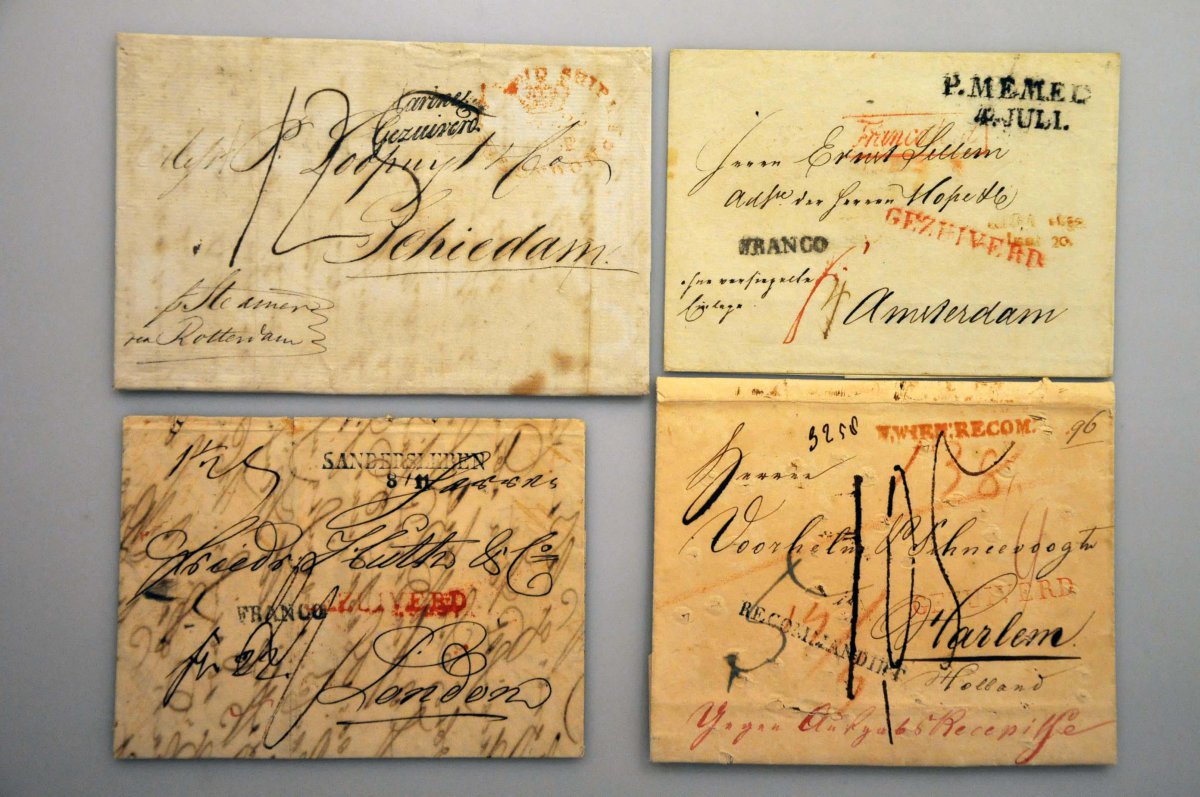 PAID SHIP L
12
Gezuiverd.
& Co
Schiedam.
p. Steamer
via Rotterdam
P. MEMEL
4. JULI.
Franco
Herrn Ernst Sillem
Adsse. der Herren Hope & Co
GEZUIVERD
FRANCO
ohne versiegelte
Einlage.
Amsterdam
SANDERSLEBEN
8 11
Friedr. Huth & Co
FRANCO
GEZUIVERD
fr 22.
London
3258
V. WIEN. RECOM.
96
Herren
Voorhelm & Schneevoogt
GEZUIVERD
RECOMMANDIRT
Harlem.
Holland
Gegen Aufgabs Recepisse